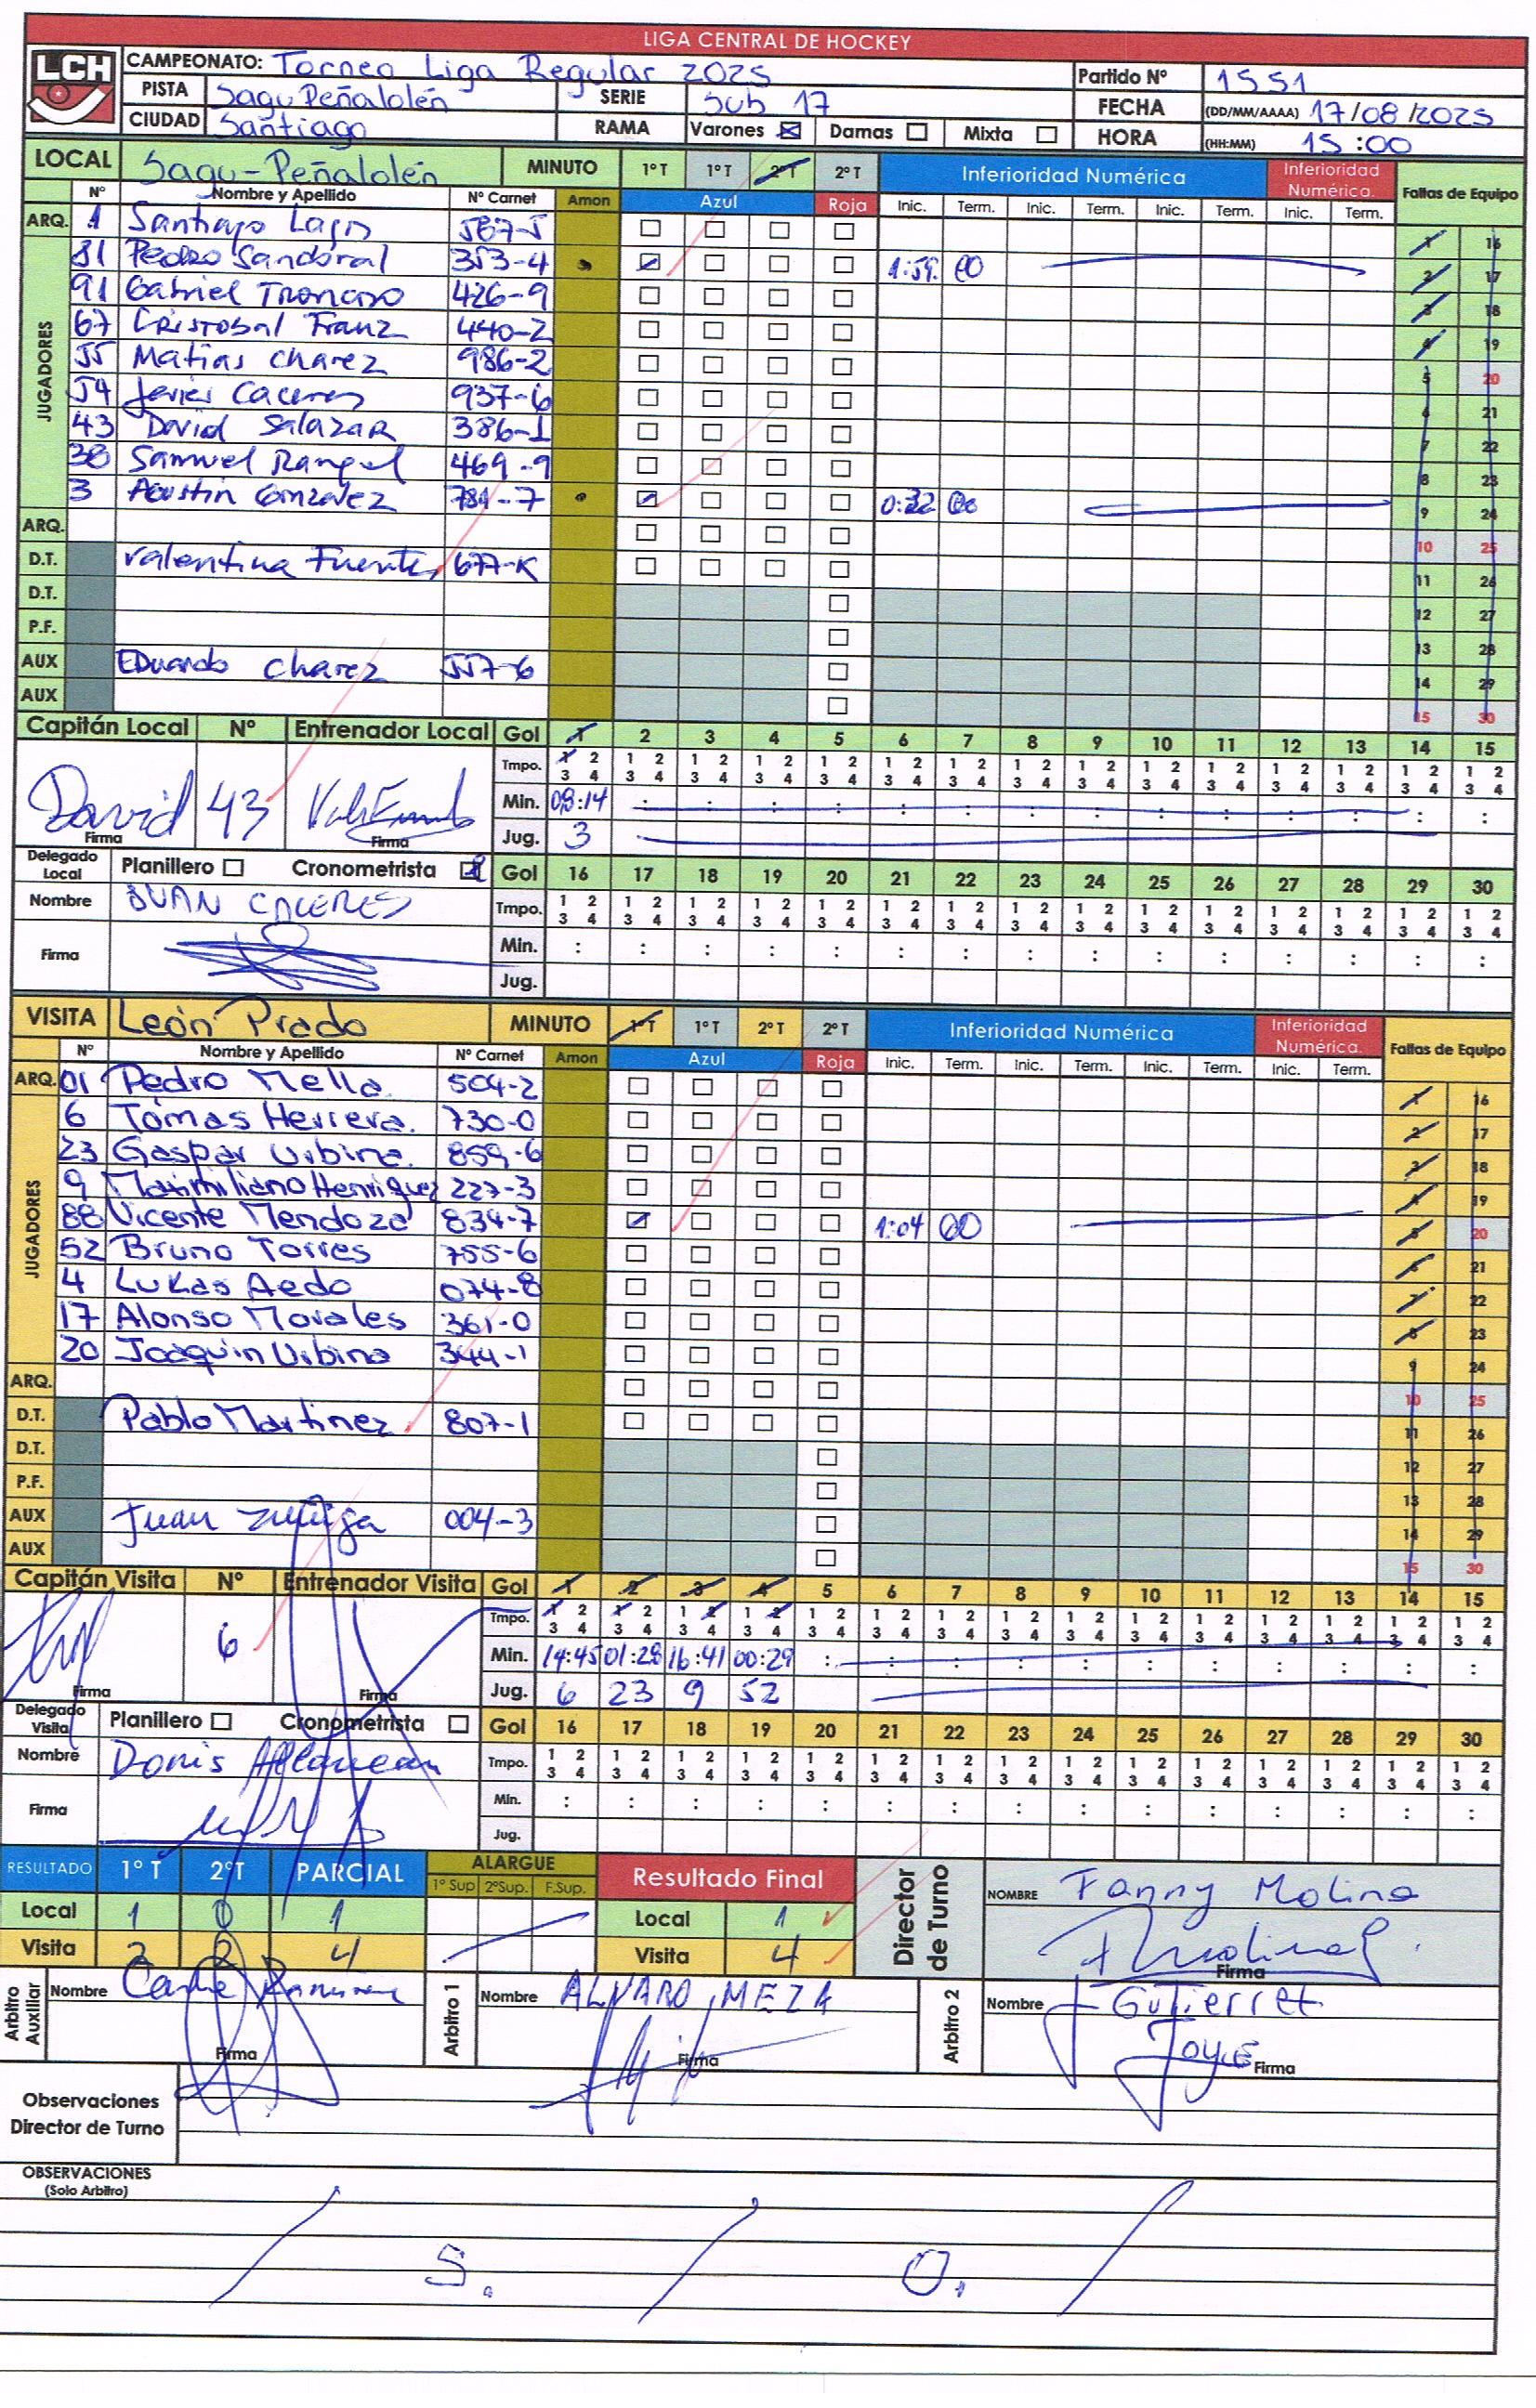 LIGA CENTRAL DE HOCKEY
LCH
CAMPEONATO: Torneo Liga Regular 2025 Partido Nº 1551
PISTA Sagu Peñalolén SERIE Sub 17 FECHA (DD/MM/AAAA) 17/08/2025
CIUDAD Santiago RAMA Varones Damas Mixta HORA (HH:MM) 15:00
LOCAL Sagu-Peñalolén MINUTO 1º T 1º T 2º T 2º T Inferioridad Numérica Inferioridad Numérica. Faltas de Equipo
Nº Nombre y Apellido Nº Carnet Amon Azul Roja Inic. Term. Inic. Term. Inic. Term. Inic. Term.
ARQ. 1 Santiago Lagos 567-5
JUGADORES
81 Pedro Sandoval 353-4 1:59 00
91 Gabriel Troncoso 426-9
67 Cristobal Franz 440-2
55 Matias Chavez 986-2
54 Javier Caceres 937-6
43 David Salazar 386-1
38 Samuel Rangel 469-9
3 Agustin Gonzalez 781-7 0:32 00
ARQ.
D.T. Valentina Fuentes 677-K
D.T.
P.F.
AUX Eduardo Chavez 557-6
AUX
1 16
2 17
3 18
4 19
5 20
6 21
7 22
8 23
9 24
10 25
11 26
12 27
13 28
14 29
15 30
Capitán Local Nº Entrenador Local Gol 1 2 3 4 5 6 7 8 9 10 11 12 13 14 15
Tmpo. 1 2 1 2 1 2 1 2 1 2 1 2 1 2 1 2 1 2 1 2 1 2 1 2 1 2 1 2 1 2
3 4 3 4 3 4 3 4 3 4 3 4 3 4 3 4 3 4 3 4 3 4 3 4 3 4 3 4 3 4
David 43 Min. 08:14 : : : : : : : : : : : : : :
Firma Firma Jug. 3
Delegado Local Planillero Cronometrista Gol 16 17 18 19 20 21 22 23 24 25 26 27 28 29 30
Nombre JUAN CACERES Tmpo. 1 2 1 2 1 2 1 2 1 2 1 2 1 2 1 2 1 2 1 2 1 2 1 2 1 2 1 2 1 2
3 4 3 4 3 4 3 4 3 4 3 4 3 4 3 4 3 4 3 4 3 4 3 4 3 4 3 4 3 4
Firma Min. : : : : : : : : : : : : : : :
Jug.
VISITA León Prado MINUTO 1º T 1º T 2º T 2º T Inferioridad Numérica Inferioridad Numérica. Faltas de Equipo
Nº Nombre y Apellido Nº Carnet Amon Azul Roja Inic. Term. Inic. Term. Inic. Term. Inic. Term.
ARQ. 01 Pedro Mella 504-2
JUGADORES
6 Tomas Herrera. 730-0
23 Gaspar Urbina. 859-6
9 Maximiliano Henriquez 227-3
88 Vicente Mendoza 834-7 1:04 00
52 Bruno Torres 755-6
4 Lukas Aedo 074-8
17 Alonso Morales 361-0
20 Joaquin Urbina 344-1
ARQ.
D.T. Pablo Martinez 807-1
D.T.
P.F.
AUX Juan Zuñiga 004-3
AUX
1 16
2 17
3 18
4 19
5 20
6 21
7 22
8 23
9 24
10 25
11 26
12 27
13 28
14 29
15 30
Capitán Visita Nº Entrenador Visita Gol 1 2 3 4 5 6 7 8 9 10 11 12 13 14 15
Tmpo. 1 2 1 2 1 2 1 2 1 2 1 2 1 2 1 2 1 2 1 2 1 2 1 2 1 2 1 2 1 2
3 4 3 4 3 4 3 4 3 4 3 4 3 4 3 4 3 4 3 4 3 4 3 4 3 4 3 4 3 4
6 Min. 14:45 01:28 16:41 00:29 : : : : : : : : : : :
Firma Firma Jug. 6 23 9 52
Delegado Visita Planillero Cronometrista Gol 16 17 18 19 20 21 22 23 24 25 26 27 28 29 30
Nombre Donis Tmpo. 1 2 1 2 1 2 1 2 1 2 1 2 1 2 1 2 1 2 1 2 1 2 1 2 1 2 1 2 1 2
3 4 3 4 3 4 3 4 3 4 3 4 3 4 3 4 3 4 3 4 3 4 3 4 3 4 3 4 3 4
Firma Min. : : : : : : : : : : : : : : :
Jug.
RESULTADO 1º T 2ºT PARCIAL ALARGUE 1º Sup 2ºSup. F.Sup. Resultado Final Director de Turno NOMBRE Fanny Molina
Local 1 0 1 Local 1
Visita 2 2 4 Visita 4 Firma
Arbitro Auxiliar Nombre Arbitro 1 Nombre ALVARO MEZA Arbitro 2 Nombre Gutierrez
Joyce
Firma Firma Firma
Observaciones
Director de Turno
OBSERVACIONES
(Solo Arbitro)
S. O.